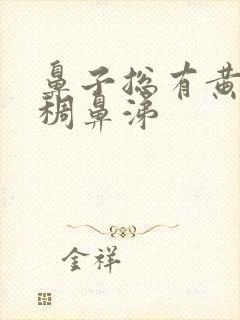 鼻子总有黄
稠鼻涕
金祥